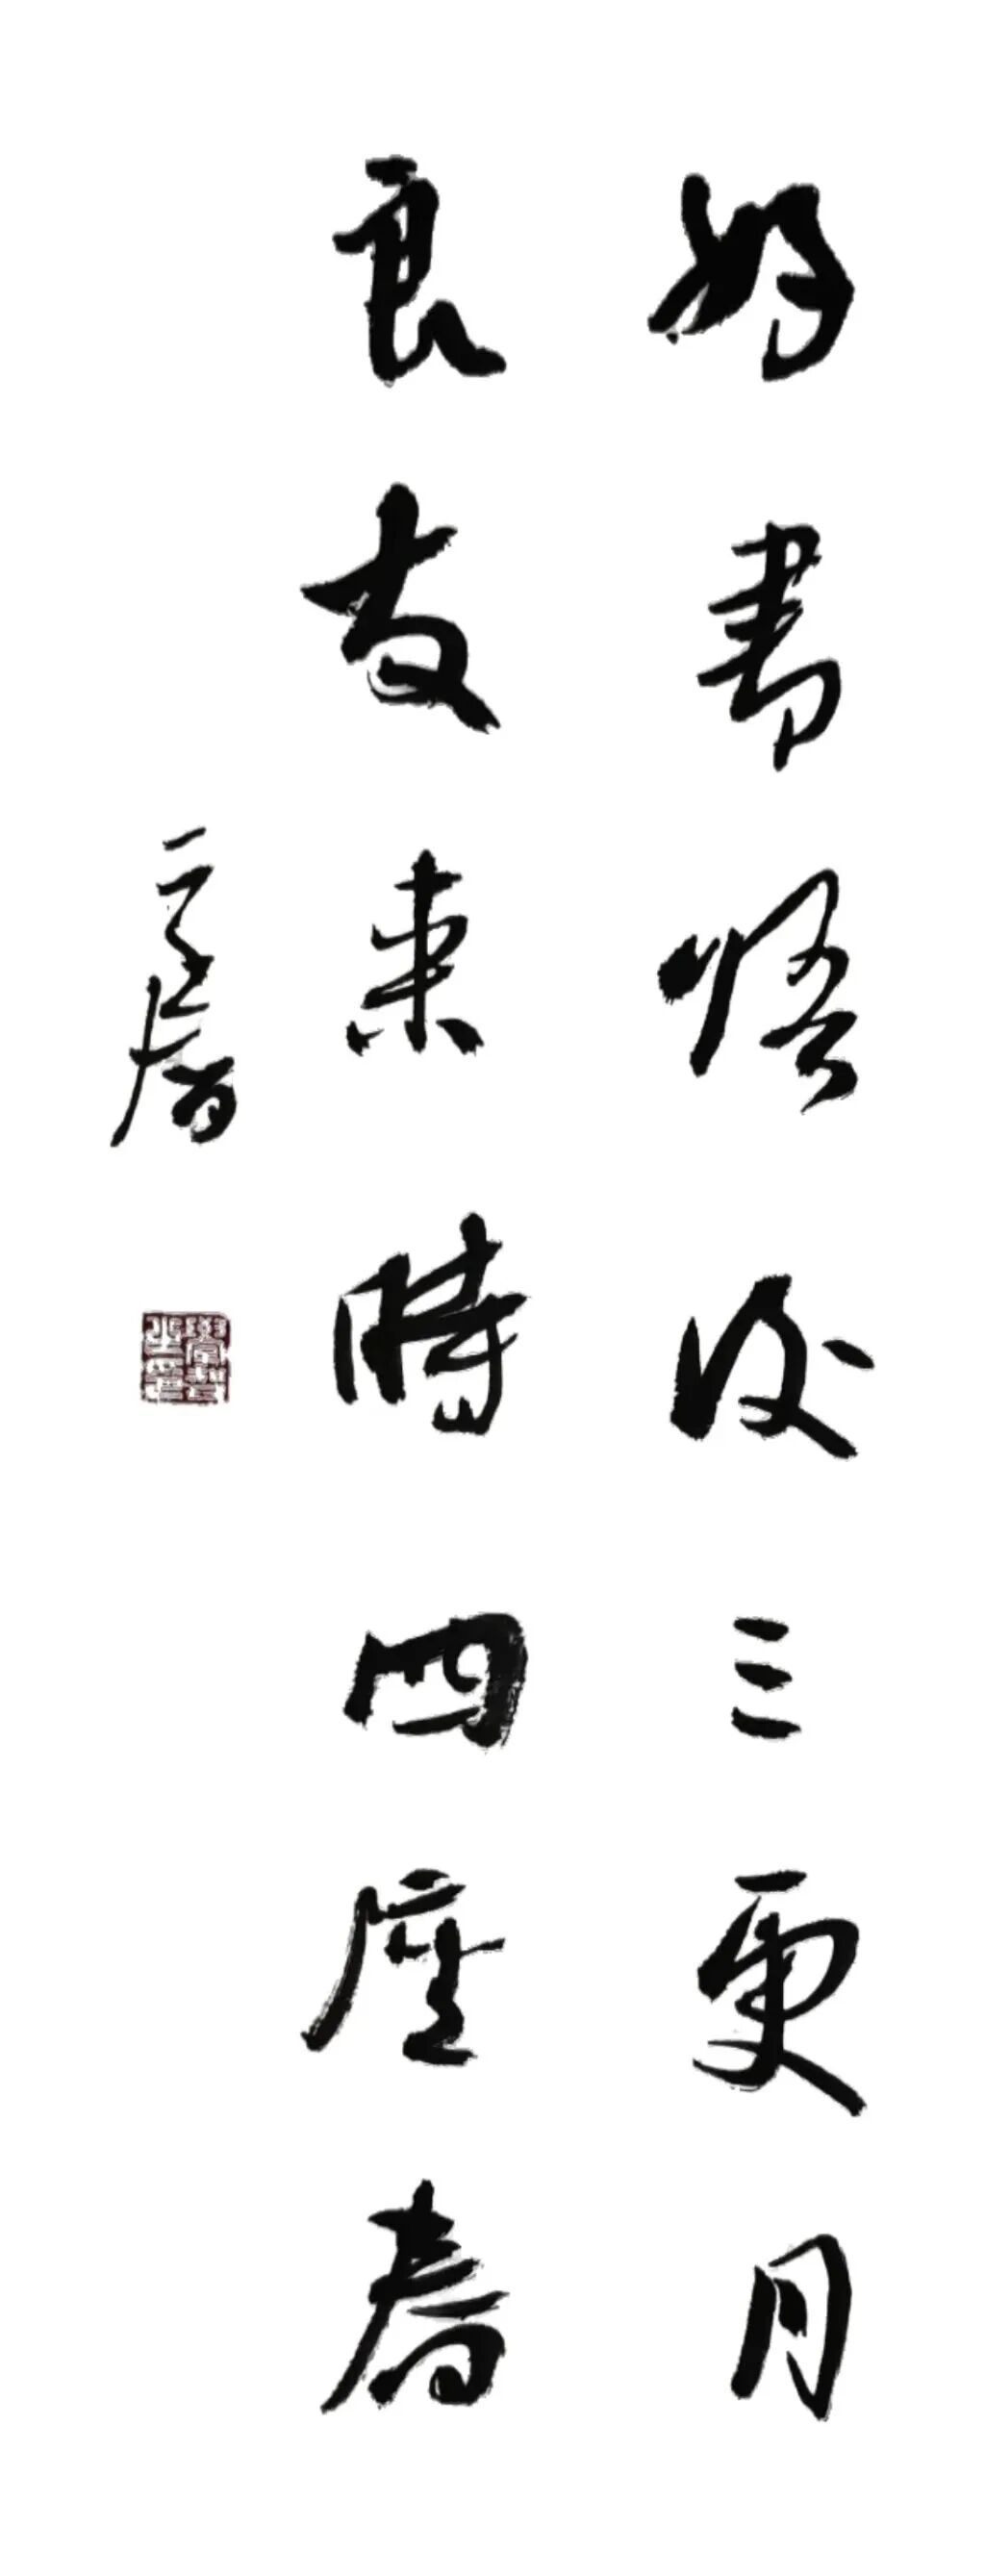 好書悟後三更月
良友來時四座春